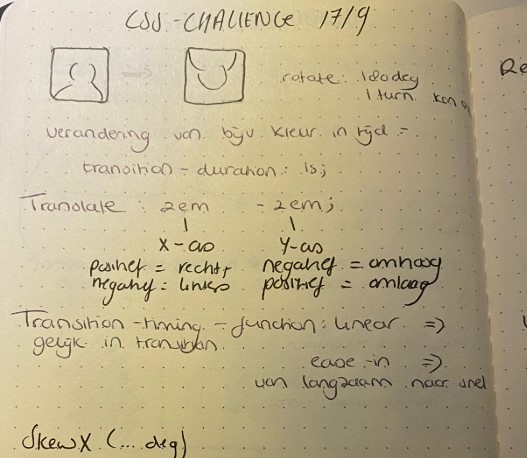 CSS-CHALLENGE 17/9
rotate: 180deg
1 turn kan
verandering van bijv kleur in tijd =
transition-duration: 1s;
Translate: 2em -2em;
X-as Y-as
positief = rechts negatief = omhoog
negatief = links positief = omlaag
Transition-timing-function: linear =>
gelijk in transition.
ease-in =>
van langzaam naar snel
SkewX (...deg)
Re